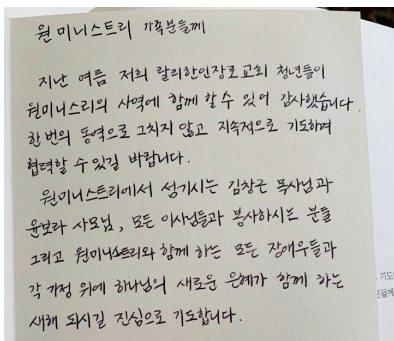 원미니스트리 가족분들께
지난 여름 저희 랄리한인장로교회 청년들이
원미니스리의 사역에 함께 할 수 있어 감사했습니다.
한 번의 동역으로 그치지 않고 지속적으로 기도하며
협력할 수 있길 바랍니다.
원미니스트리에서 섬기시는 김창근 목사님과
윤보라 사모님, 모든 이사님들과 봉사하시는 분들
그리고 원미니스트리와 함께 하는 모든 장애우들과
각 가정 위에 하나님의 새로운 은혜가 함께 하는
새해 되시길 진심으로 기도합니다.
기도
분들께